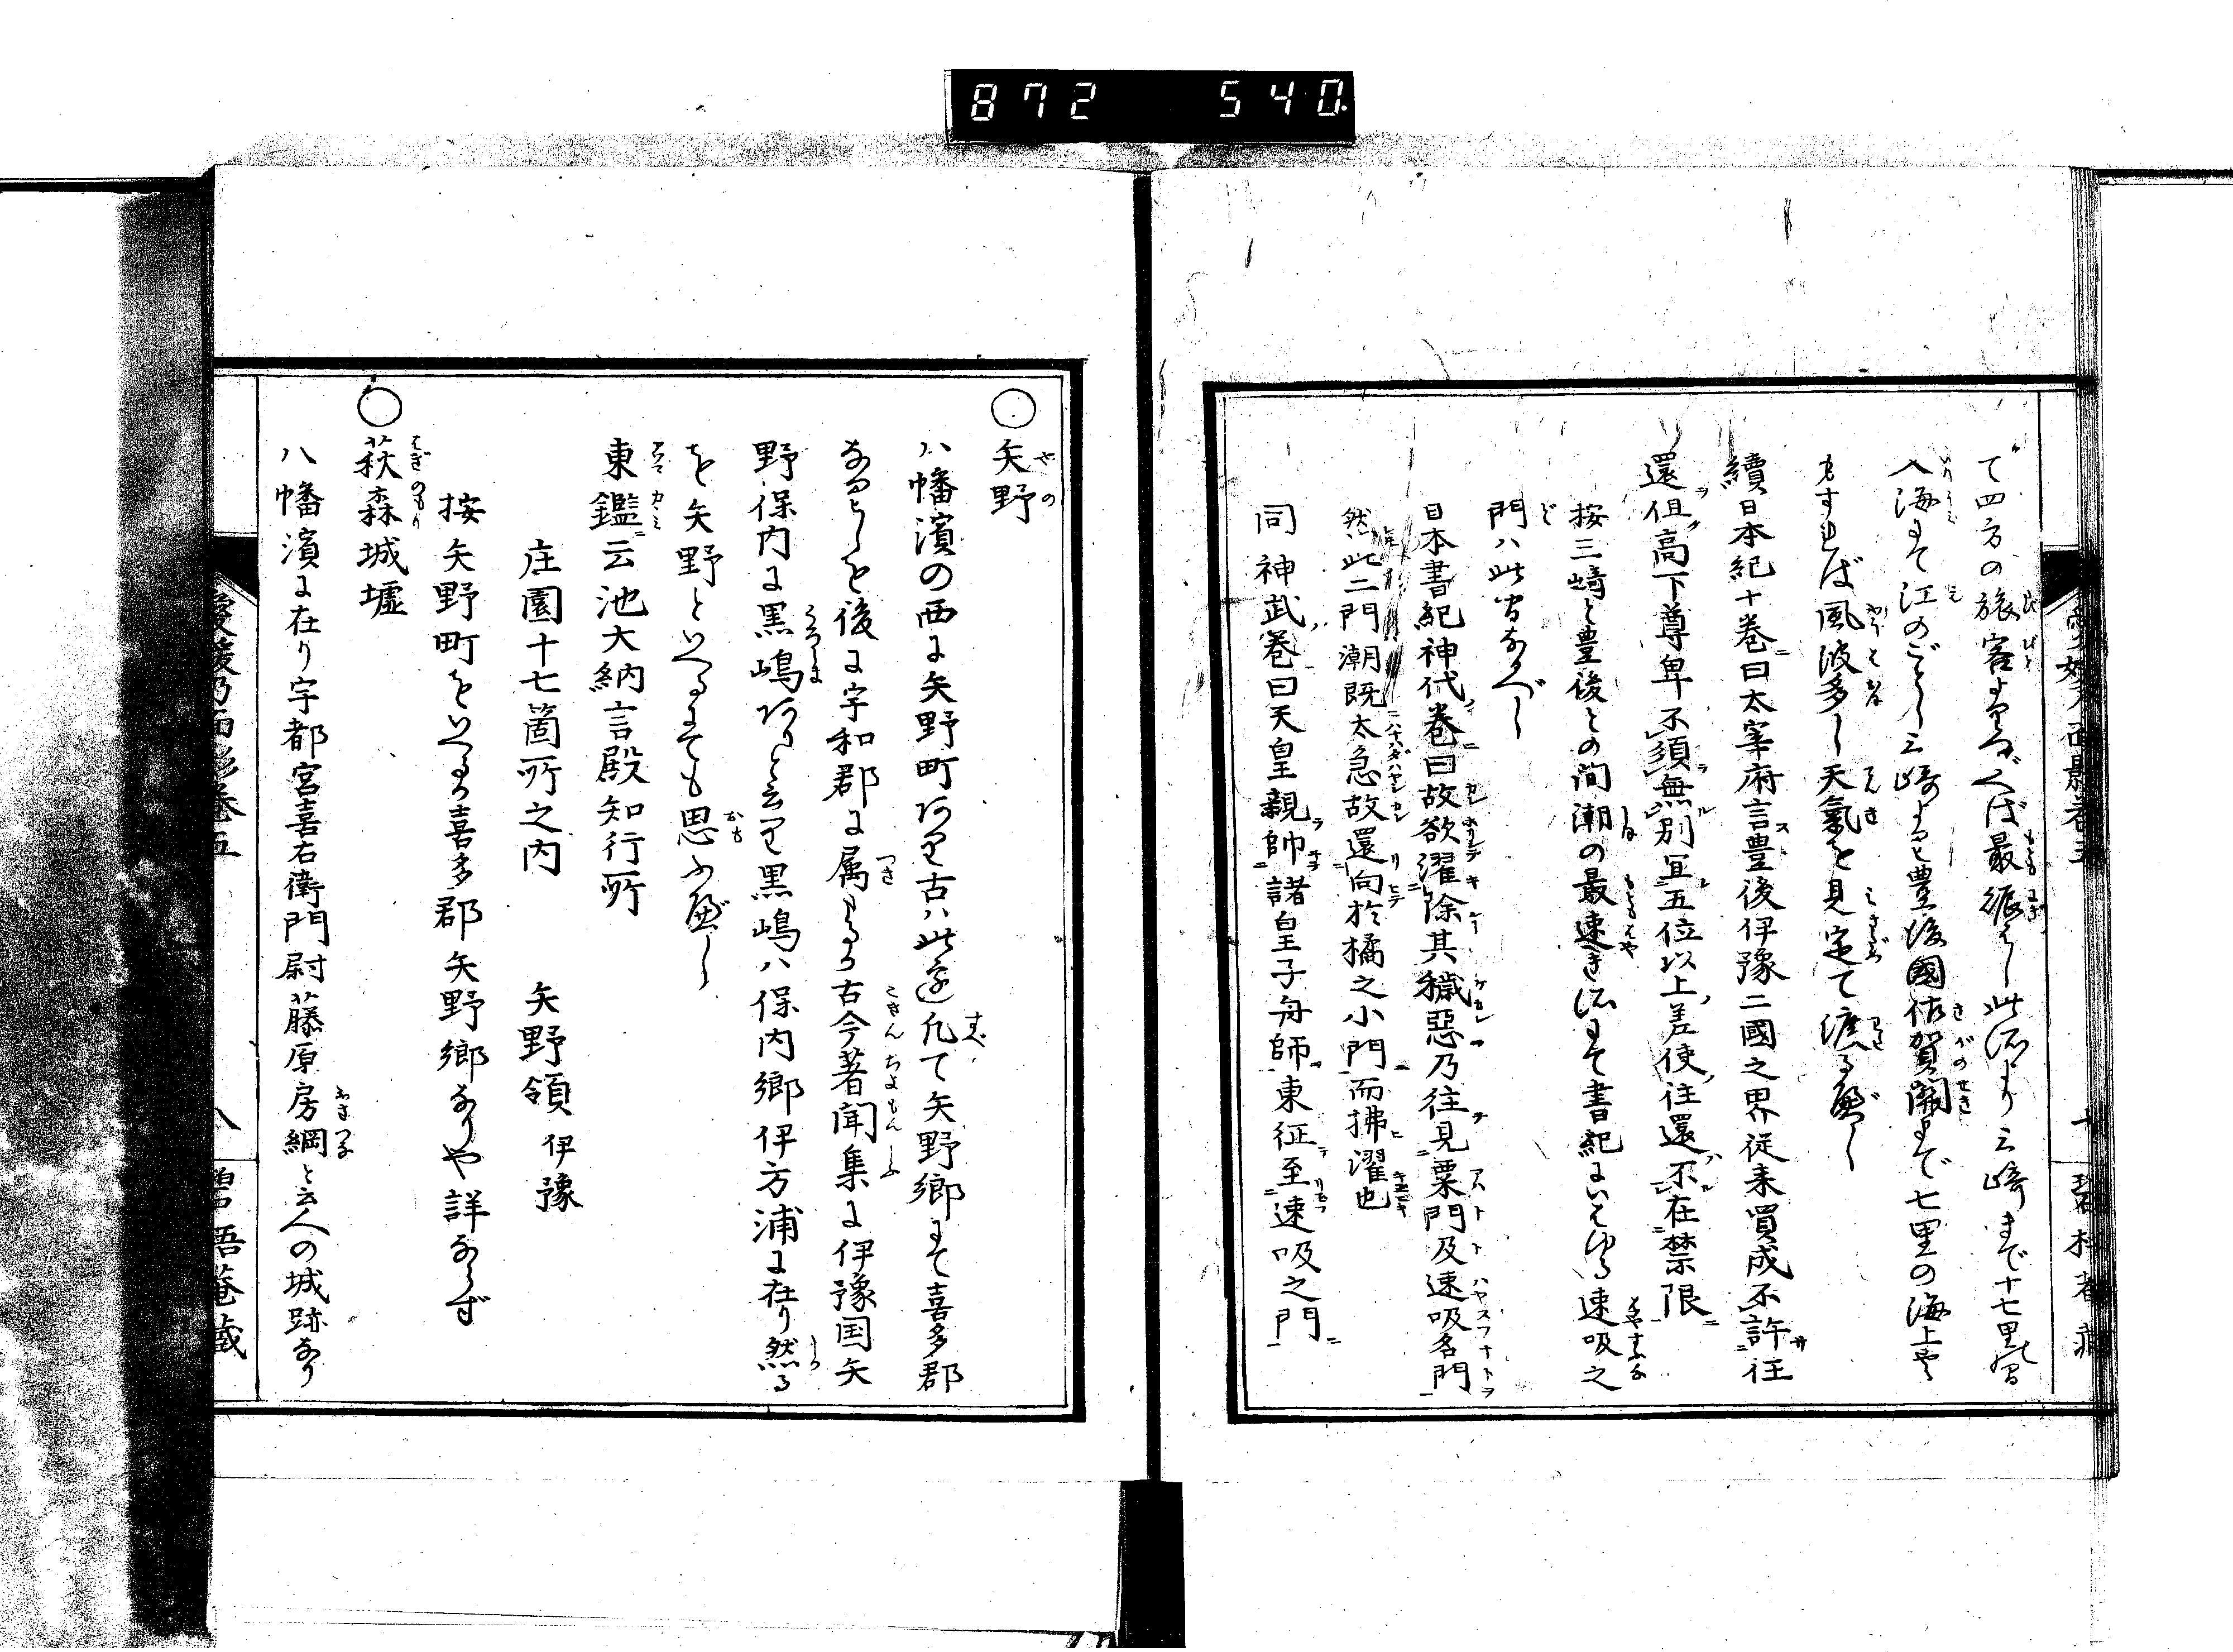 872 540
て四方の旅客よりつどへば最賑はし此浦より三崎まで十七里此間
入海にて江のごとし三崎より豊後國佐賀關まで七里の海上也
すれば風波多し天氣を見定て渡るべし
續日本紀十巻曰太宰府言豊後伊豫二國之界從来買成不許往
還但高下尊卑不須無別宜五位以上差使往還不在禁限
按三﨑と豊後との間潮の最速き所にて書紀にいはゆる速吸之
門ハ此間なるべし
日本書紀神代巻曰故欲濯除其穢惡乃往見粟門及速吸名門
然此二門潮既太急故還向於橘之小門而拂濯也
同神武巻曰天皇親帥諸皇子舟師東征至速吸之門
○矢野
八幡濱の西に矢野町あり古ハ此邊凡て矢野郷にて喜多郡
なりしを後に宇和郡に属せるか古今著聞集に伊豫国矢
野保内に黒嶋ありと云り黒嶋ハ保内郷伊方浦に在り然る
を矢野といへるにても思ふべし
東鑑云池大納言殿知行所
庄園十七箇所之内 矢野領 伊豫
按矢野町をいへるか喜多郡矢野郷なりや詳ならず
○萩森城墟
八幡濱に在り宇都宮喜右衛門尉藤原房綱と云人の城跡なり
愛媛乃面影巻五 八